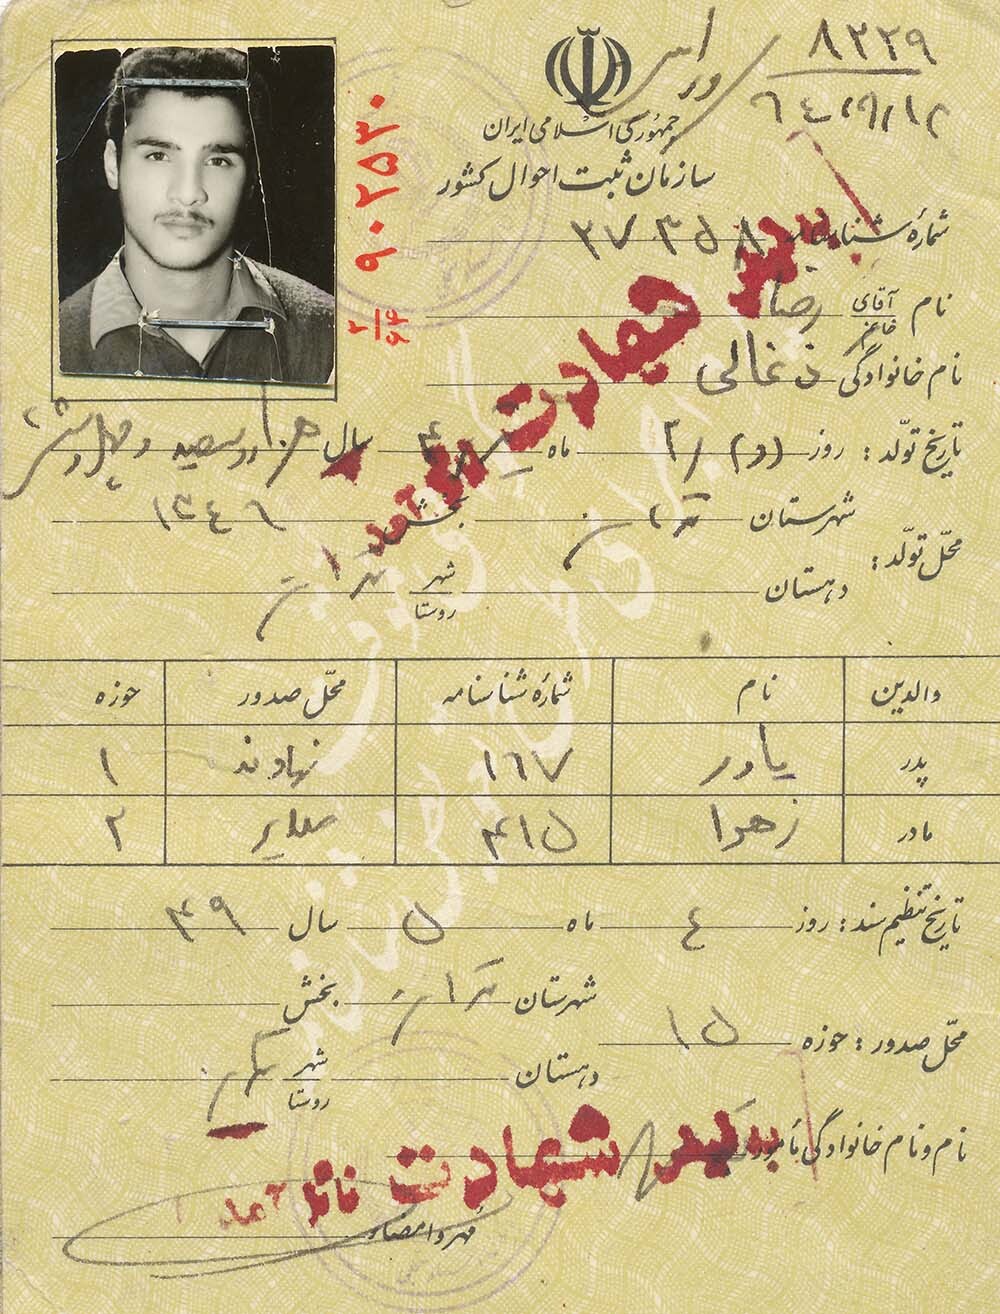 ۸۲۲۹
۶٤/۹/۱۲
جمهوری اسلامی ایران
سازمان ثبت احوال کشور
۹۰۲۵۳۰
۲/۶۴
شمارهٔ شناسنامه ۲۷۳۵۸
نام آقای خانم رضا
نام خانوادگی ذغالی
به درجه شهادت نائل آمد
تاریخ تولّد: روز (دو) ۲/ ماه سال هزار و سیصد و چهل و شش
محلّ تولّد: شهرستان تهران بخش ۱۳٤٦
دهستان شهر روستا تهران
والدین نام شمارهٔ شناسنامه محلّ صدور حوزه
پدر یاور ۱۶۷ نهاوند ۱
مادر زهرا ۴۱۵ ملایر ۲
تاریخ تنظیم سند: روز ٤ ماه ۵ سال ۴۹
محلّ صدور: حوزه ۱۵ شهرستان تهران بخش
دهستان شهر روستا تهران
نام و نام خانوادگی مأمور
به درجه شهادت نائل آمد
مهر و امضاء